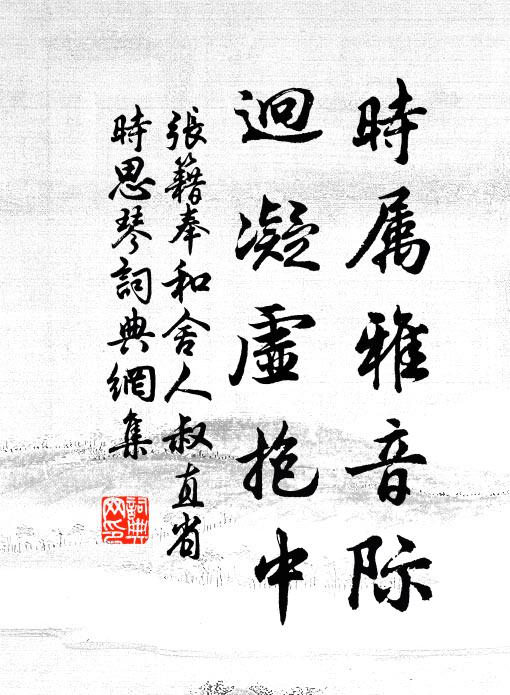 時属雅音际
迥凝虛抱中
張籍奉和舍人叔直省
時思琴詞典網集
詞典
网印